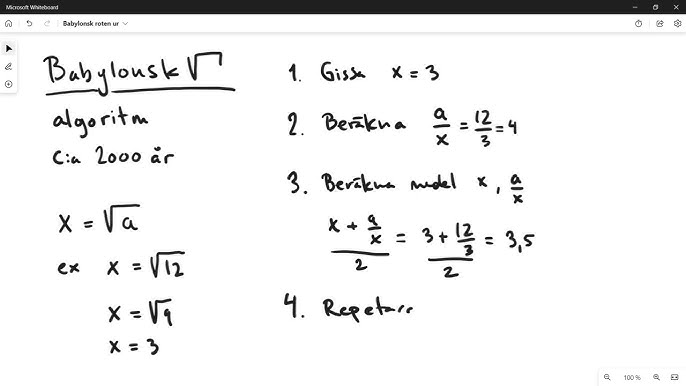 Microsoft Whiteboard
Babylonsk roten ur
Babylonsk √
algoritm
C:a 2000 år
x = √a
ex x = √12
x = √9
x = 3
1. Gissa x = 3
2. Beräkna a/x = 12/3 = 4
3. Beräkna medel x, a/x
(x + a/x)/2 = (3 + 12/3)/2 = 3,5
4. Repetarr
100 %